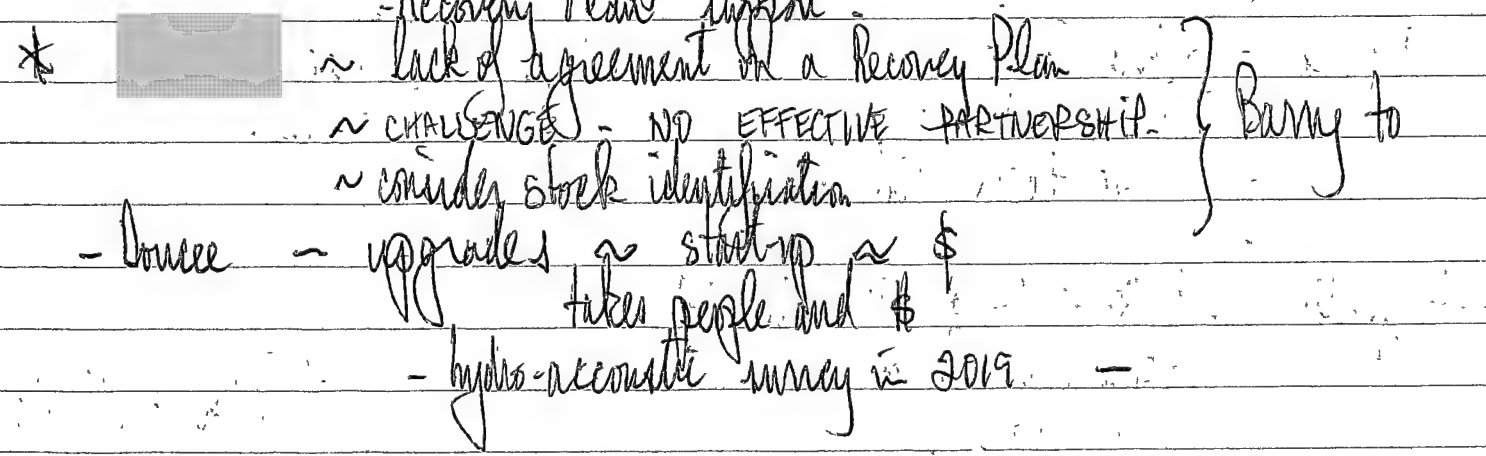 - Recovery Team
* ~ lack of agreement on a Recovery Plan
~ CHALLENGE - NO EFFECTIVE PARTNERSHIP - } Barry to
~ consider stock identification
- Doucee - upgrades ~ start-up ~ $
takes people and $
- hydro-accoustic survey in 2019 -